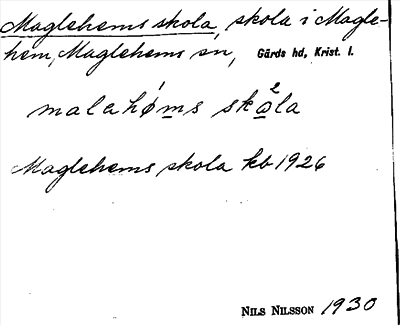 Maglehems skola, skola i Magle-
hem, Maglehems sn, Gärds hd, Krist. l.
malahǿms skola
Maglehems skola kb 1926
NILS NILSSON 1930